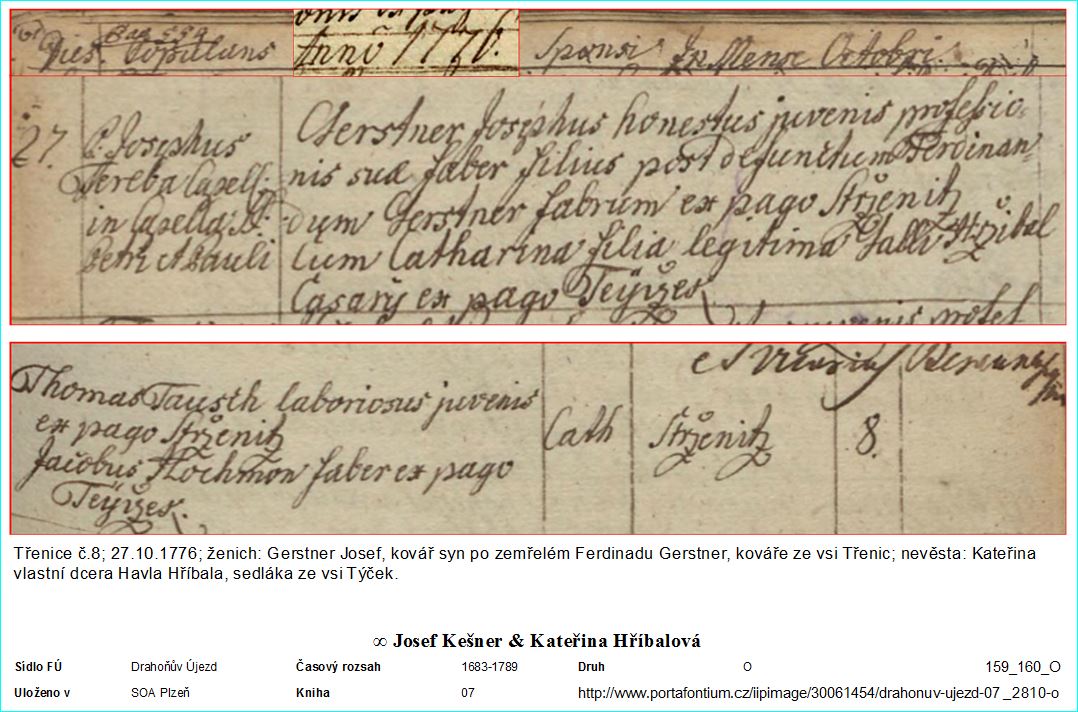 Dies. Copulans Anno 1776. Sponsi In Mense Octobri.
27. P. Josephus Gerstner Josephus honestus juvenis professio-
Tereba Capell: nis suæ faber filius post defunctum Ferdinan-
in Capella S: dum Gerstner fabrum ex pago Strženitz
Petri et Pauli Cum Catharina filia legitima Galli Hržibal
Časarÿ ex pago Teÿžek
juvenis profes
Thomas Tausch laboriosus juvenis
ex pago Strženitz Cath Strženitz 8.
Jacobus Hochmon faber ex pago
Teÿžek.
Třenice č.8; 27.10.1776; ženich: Gerstner Josef, kovář syn po zemřelém Ferdinadu Gerstner, kováře ze vsi Třenic; nevěsta: Kateřina
vlastní dcera Havla Hříbala, sedláka ze vsi Týček.
∞ Josef Kešner & Kateřina Hříbalová
Sídlo FÚ Drahoňův Újezd Časový rozsah 1683-1789 Druh O 159_160_O
Uloženo v SOA Plzeň Kniha 07 http://www.portafontium.cz/iipimage/30061454/drahonuv-ujezd-07_2810-o